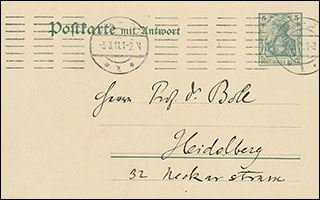 Postkarte mit Antwort
5 5
DEUTSCHES REICH
-3.3.11.1-2 N
Herrn Prof. Dr. Boll
Heidelberg
32 Neckarstrasse